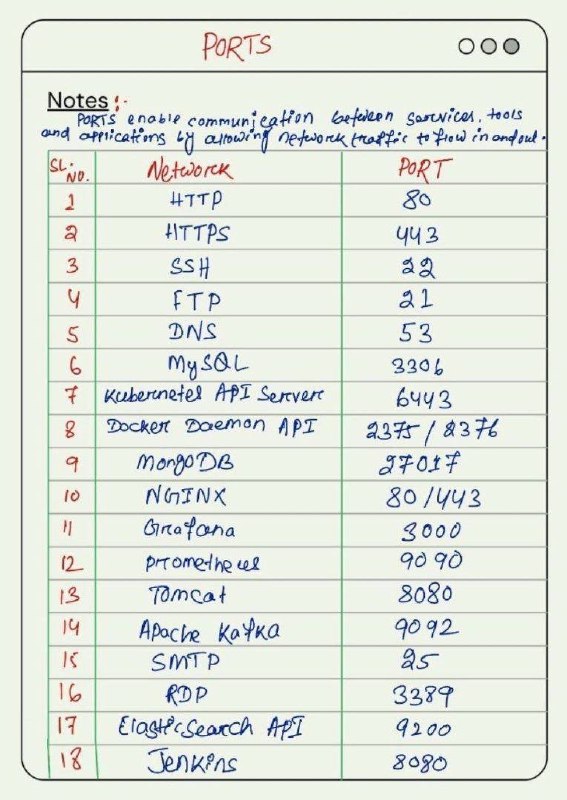 PORTS
Notes :-
PORTS enable communication between services, tools
and applications by allowing network traffic to flow in and out.
SL. NO. Network PORT
1 HTTP 80
2 HTTPS 443
3 SSH 22
4 FTP 21
5 DNS 53
6 MySQL 3306
7 Kubernetes API Server 6443
8 Docker Daemon API 2375 / 2376
9 MongoDB 27017
10 NGINX 80/443
11 Grafana 3000
12 Prometheus 9090
13 Tomcat 8080
14 Apache Kafka 9092
15 SMTP 25
16 RDP 3389
17 ElasticSearch API 9200
18 Jenkins 8080